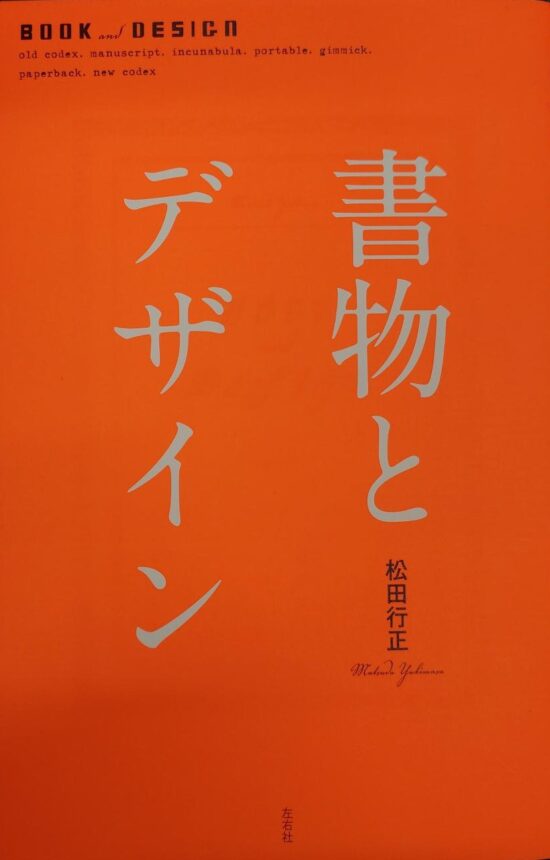 BOOK and DESIGN
old codex. manuscript. incunabula. portable. gimmick.
paperback. new codex
書物と
デザイン
松田行正
Matsuda Yukimasa
左右社